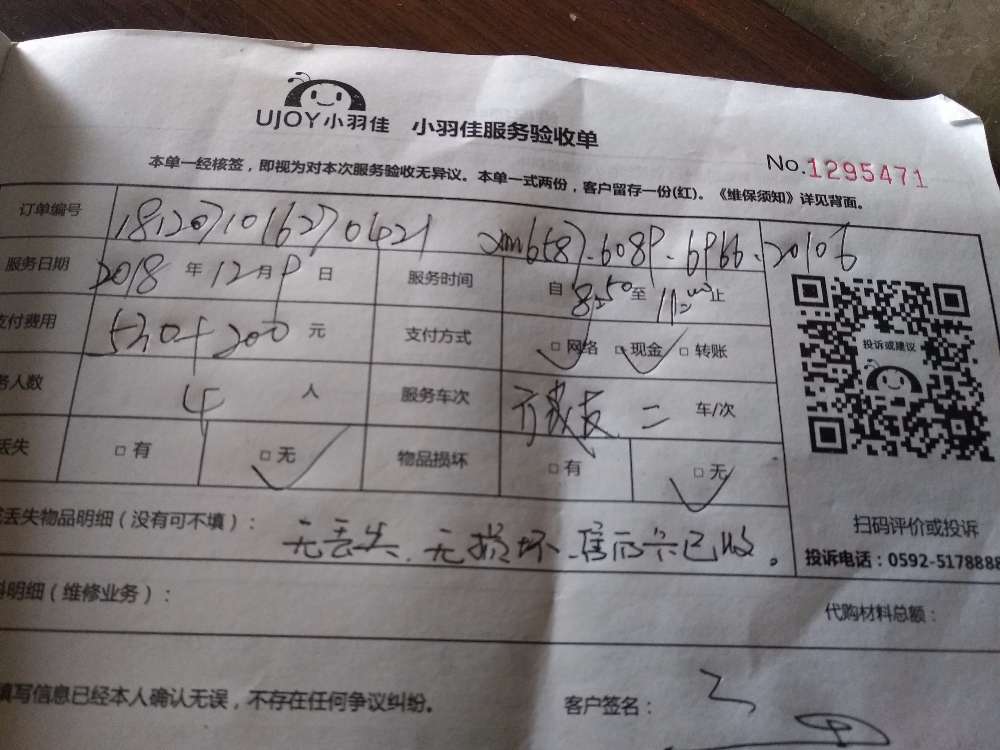 UJOY小羽佳 小羽佳服务验收单
No.1295471
本单一经核签，即视为对本次服务验收无异议。本单一式两份，客户留存一份(红)。《维保须知》详见背面。
订单编号 1812071016270421
服务日期 2018 年 12 月 9 日 服务时间 自 8:50 至 11:00 止
支付费用 530+200 元 支付方式 □网络 □现金 □转账
务人数 4 人 服务车次 二 车/次
丢失 □有 □无 物品损坏 □有 □无
投诉或建议
扫码评价或投诉
投诉电话：0592-5178888
丢失物品明细（没有可不填）： 无丢失.无损坏.售后卡已收。
料明细（维修业务）： 代购材料总额：
填写信息已经本人确认无误，不存在任何争议纠纷。 客户签名：